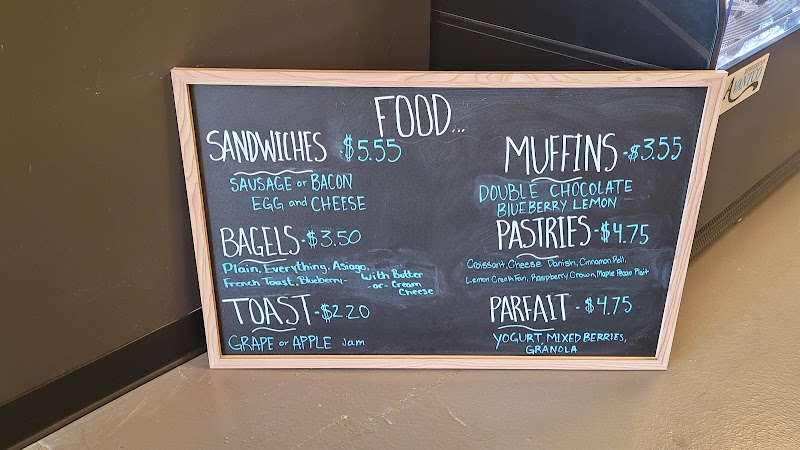 FOOD...
SANDWICHES - $5.55
SAUSAGE or BACON
EGG and CHEESE
BAGELS - $3.50
Plain, Everything, Asiago,
French Toast, Blueberry -
with Butter
- or - Cream
Cheese
TOAST - $2.20
GRAPE or APPLE Jam
MUFFINS - $3.55
DOUBLE CHOCOLATE
BLUEBERRY LEMON
PASTRIES - $4.75
Croissant, Cheese Danish, Cinnamon Roll,
Lemon Creek Fan, Raspberry Crown, Maple Pecan Plait
PARFAIT - $4.75
YOGURT, MIXED BERRIES,
GRANOLA